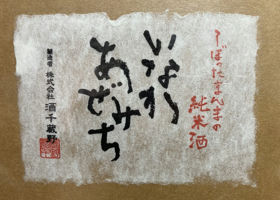 しぼったまんまの
純米酒
いなか
あぜみち
製造者 株式会社 酒千蔵野